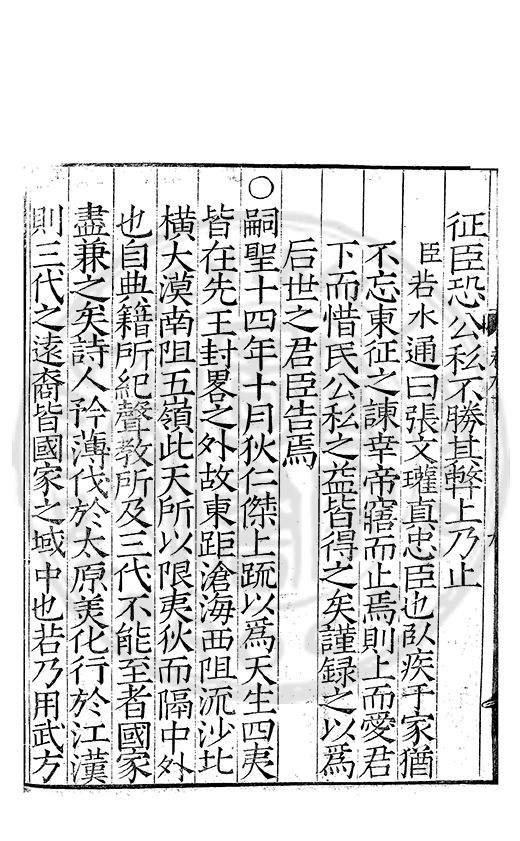 征臣恐公私不勝其弊上乃止
臣若水通曰張文瓘真忠臣也臥疾于家猶
不忘東征之諫幸帝寤而止焉則上而愛君
下而惜民公私之益皆得之矣謹録之以爲
后世之君臣告焉
○嗣聖十四年十月狄仁傑上䟽以爲天生四夷
皆在先王封畧之外故東距滄海西阻流沙北
横大漠南阻五嶺此天所以限夷狄而隔中外
也自典籍所紀聲教所及三代不能至者國家
盡兼之矣詩人矜薄伐於太原美化行於江漢
則三代之遠裔皆國家之域中也若乃用武方